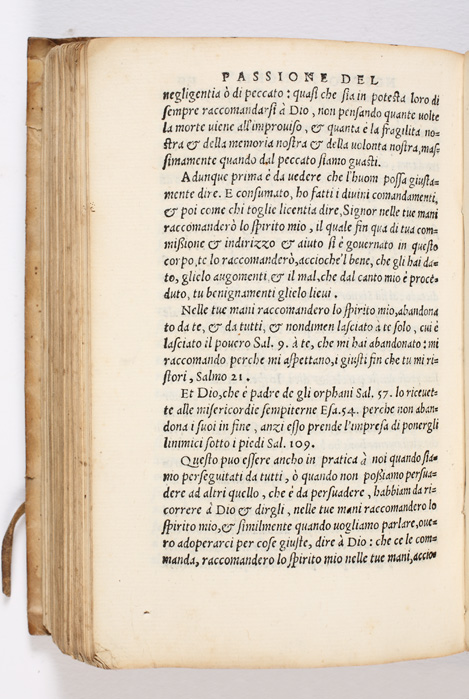 PASSIONE DEL
negligentia ò di peccato : quasi che sia in potesta loro di
sempre raccomandarsi à Dio , non pensando quante uolte
la morte uiene all'improuiso , & quanta è la fragilita no-
stra & della memoria nostra & della uolonta nostra, mas-
simamente quando dal peccato siamo guasti.
Adunque prima è da uedere che l'huom possa giusta-
mente dire. E consumato, ho fatti i diuini comandamenti,
& poi come chi toglie licentia dire, Signor nelle tue mani
raccomanderò lo spirito mio , il quale fin qua di tua com-
missione & indirizzo & aiuto si è gouernato in questo
corpo, te lo raccomanderò, accioche'l bene, che gli hai da-
to, glielo augomenti & il mal, che dal canto mio è proce-
duto, tu benignamenti glielo lieui .
Nelle tue mani raccomandero lo spirito mio, abandona
to da te, & da tutti, & nondimen lasciato à te solo , cui è
lasciato il pouero Sal. 9. à te, che mi hai abandonato : mi
raccomando perche mi aspettano, i giusti fin che tu mi ri-
stori , Salmo 21 .
Et Dio, che è padre de gli orphani Sal. 57. lo riceuet-
te alle misericordie sempiterne Esa. 54. perche non aban-
dona i suoi in fine , anzi esso prende l'impresa di ponergli
linimici sotto i piedi Sal. 109.
Questo puo essere ancho in pratica à noi quando sia-
mo perseguitati da tutti , ò quando non possiamo persua-
dere ad altri quello , che è da persuadere , habbiam da ri-
correre à Dio & dirgli , nelle tue mani raccomandero lo
spirito mio, & similmente quando uogliamo parlare, oue-
ro adoperarci per cose giuste, dire à Dio : che ce le com-
manda, raccomandero lo spirito mio nelle tue mani, accio